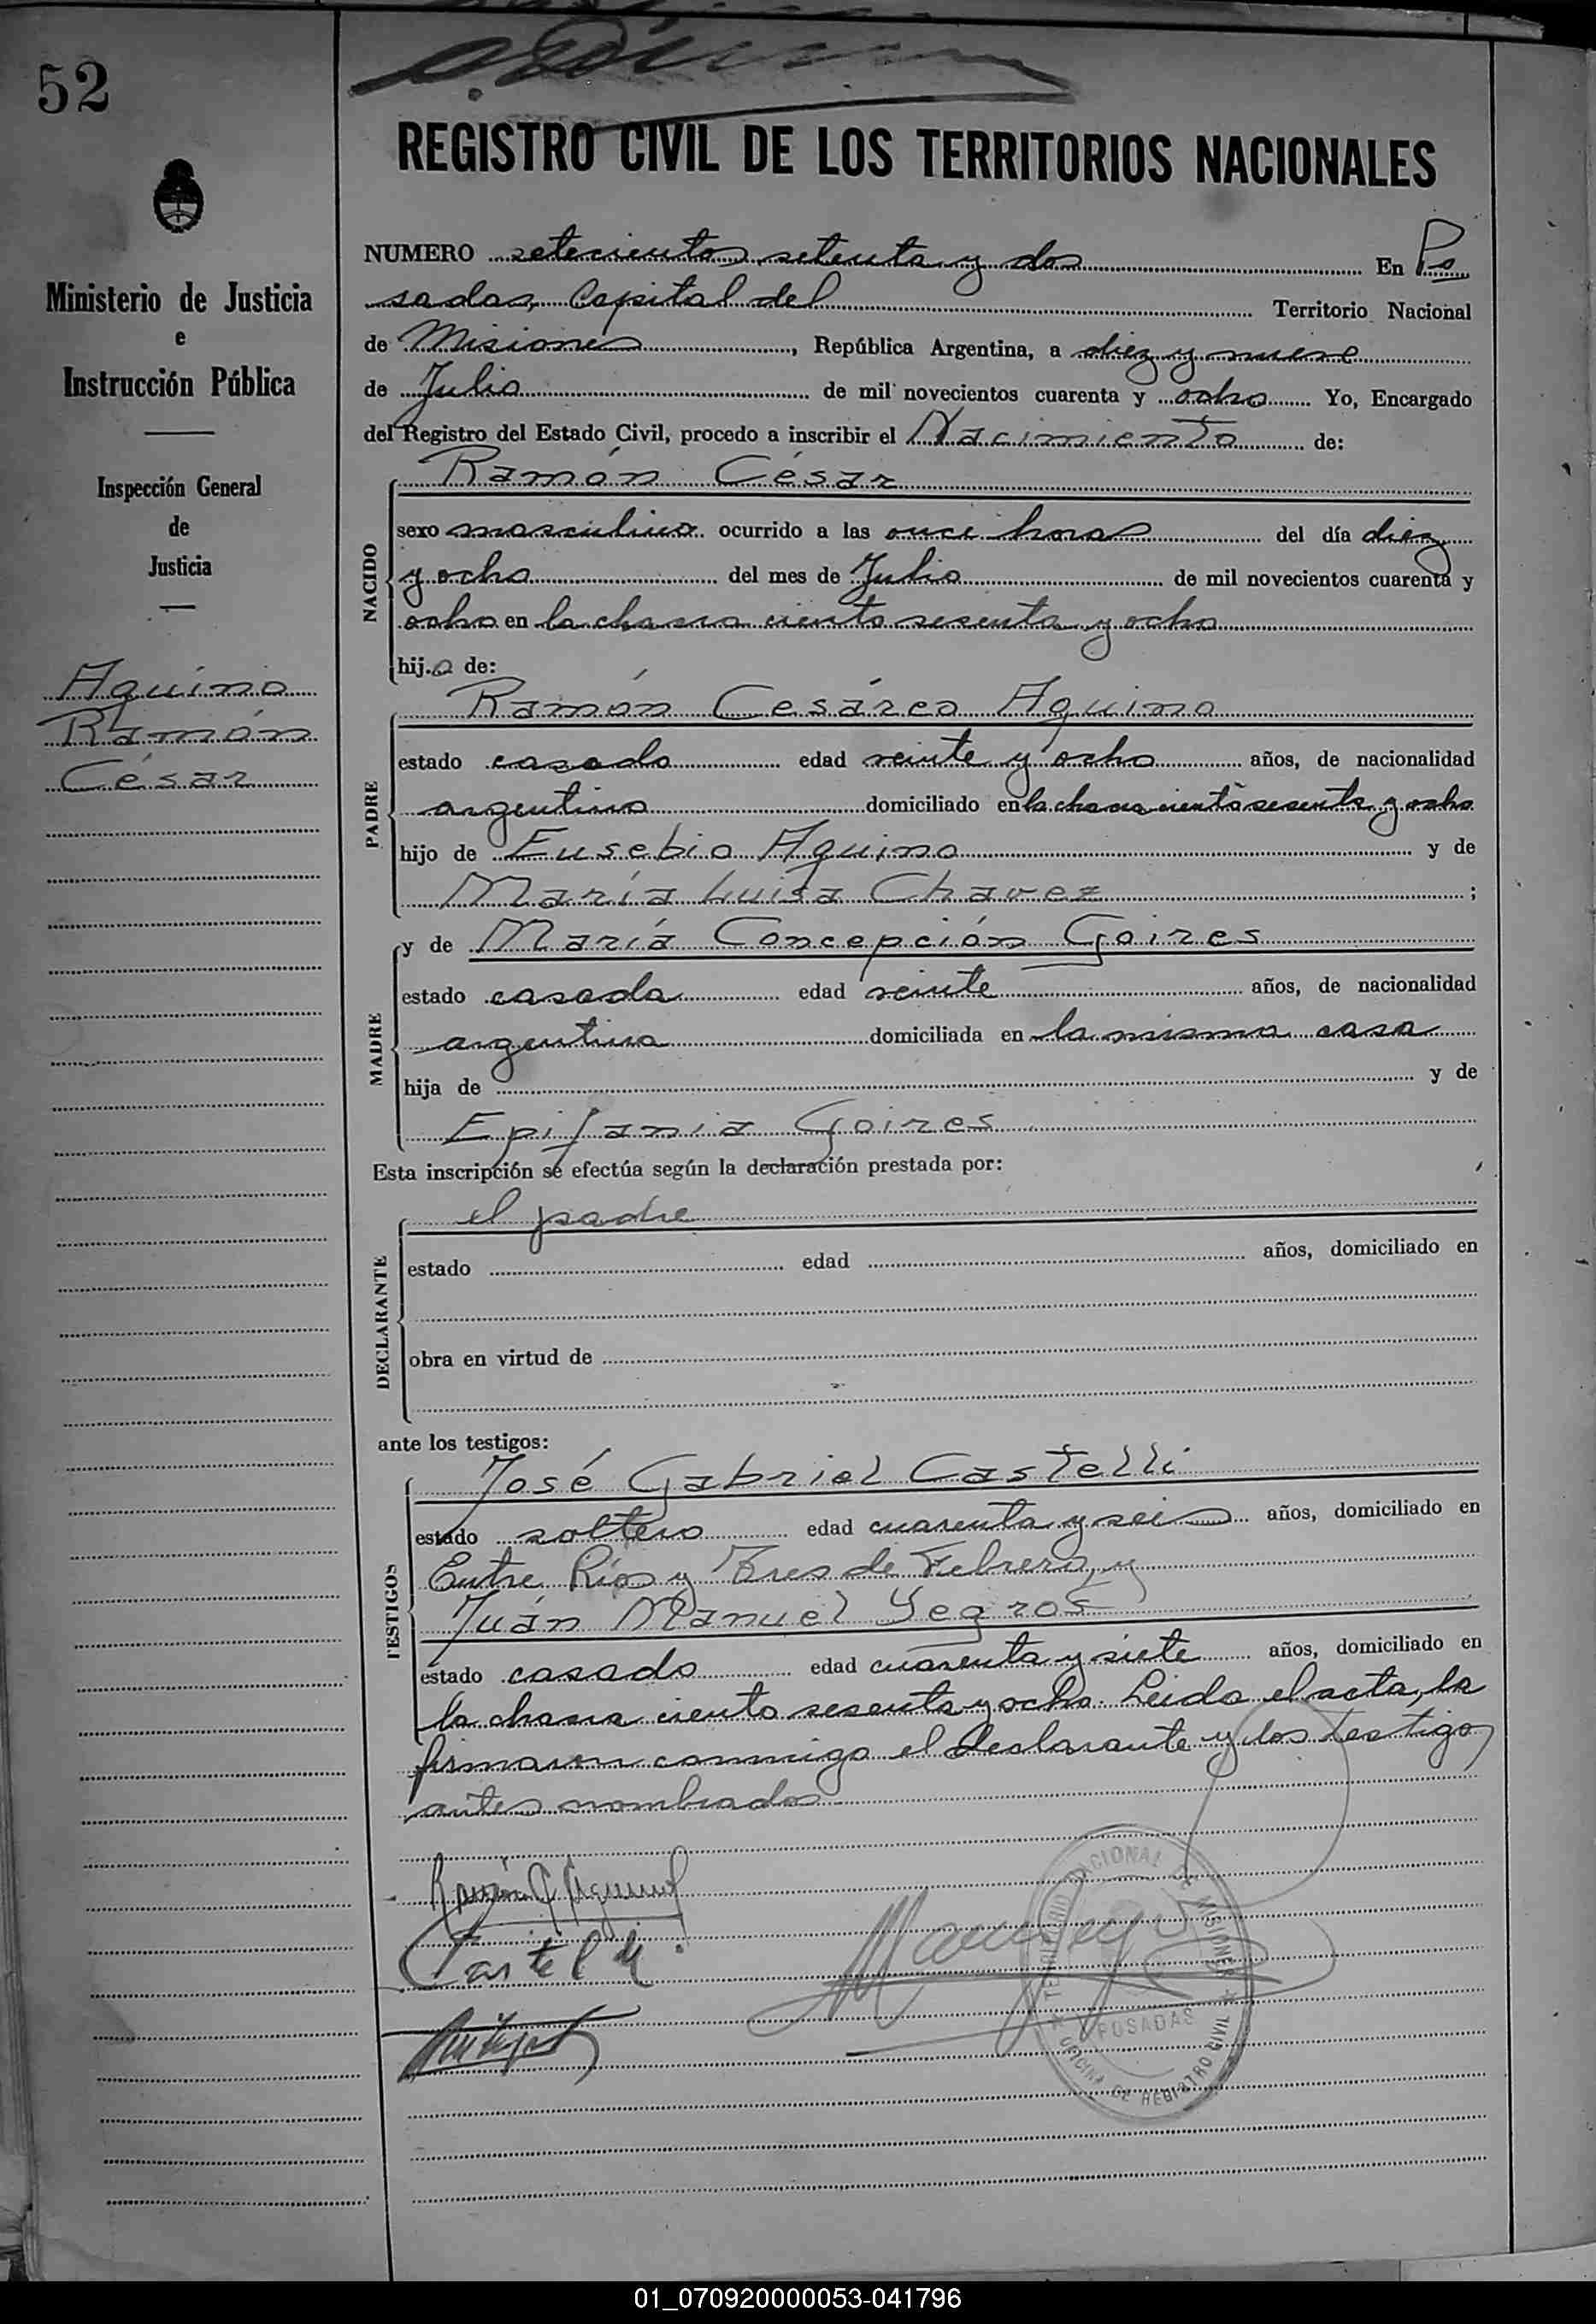 52
REGISTRO CIVIL DE LOS TERRITORIOS NACIONALES
Ministerio de Justicia
e
Instrucción Pública
Inspección General
de
Justicia
Aquino
Ramón
César
NUMERO setecientos setenta y dos En Po
sadas, Capital del Territorio Nacional
de Misiones, República Argentina, a diez y nueve
de Julio de mil novecientos cuarenta y ocho Yo, Encargado
del Registro del Estado Civil, procedo a inscribir el Nacimiento de:
NACIDO
Ramón César
sexo masculino ocurrido a las once horas del día diez
y ocho del mes de Julio de mil novecientos cuarenta y
ocho en la chacra ciento sesenta y ocho
hijo de:
PADRE
Ramón Cesáreo Aquino
estado casado edad veinte y ocho años, de nacionalidad
argentino domiciliado en la chacra ciento sesenta y ocho
hijo de Eusebio Aquino y de
María Luisa Chavez ;
MADRE
y de María Concepción Goires
estado casada edad veinte años, de nacionalidad
argentina domiciliada en la misma casa
hija de y de
Epifania Goires
Esta inscripción se efectúa según la declaración prestada por:
DECLARANTE
el padre
estado edad años, domiciliado en
obra en virtud de
ante los testigos:
TESTIGOS
José Gabriel Castelli
estado soltero edad cuarenta y seis años, domiciliado en
Entre Ríos y Tres de Febrero, y
Juán Manuel Yegros
estado casado edad cuarenta y siete años, domiciliado en
la chacra ciento sesenta y ocho. Leida el acta, la
firmaron conmigo el declarante y los testigos
antes nombrados
Ramón C Aquino
Castelli
TERRITORIO NACIONAL DE MISIONES
POSADAS
OFICINA DE REGISTRO CIVIL
01_070920000053-041796